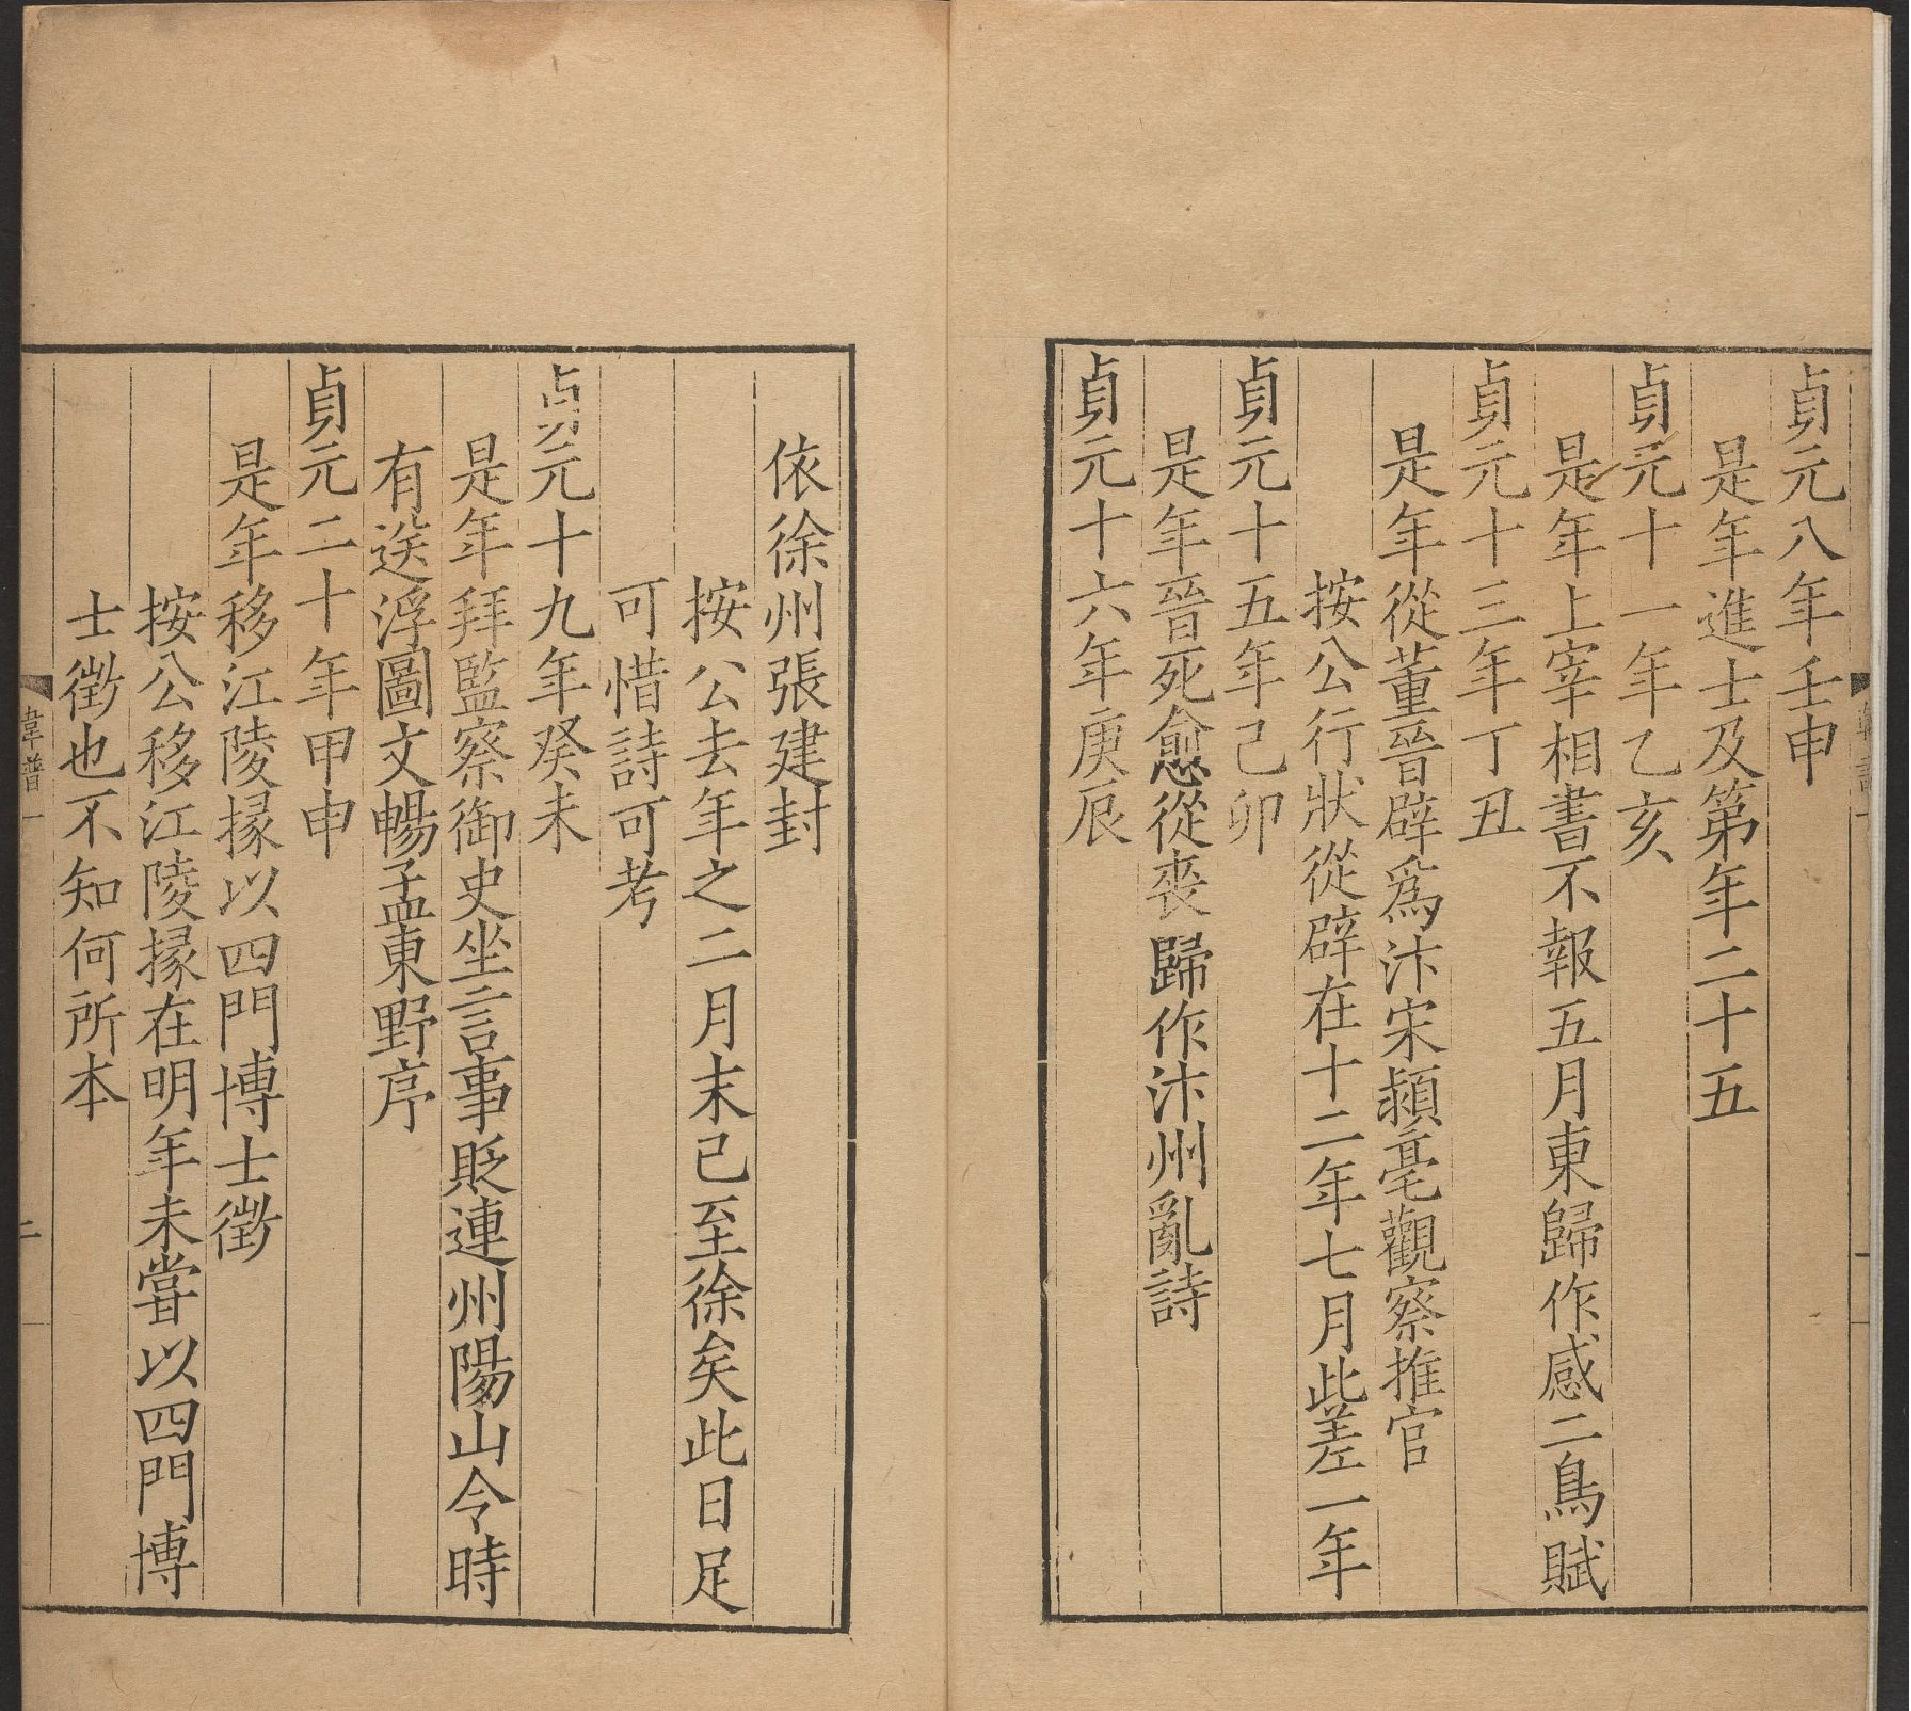 貞元八年壬申
是年進士及第年二十五
貞元十一年乙亥
是年上宰相書不報五月東歸作感二鳥賦
貞元十三年丁丑
是年從董晉辟爲汴宋潁亳觀察推官
按公行狀從辟在十二年七月此差一年
貞元十五年己卯
是年晉死愈從喪歸作汴州亂詩
貞元十六年庚辰
依徐州張建封
按公去年之二月末已至徐矣此日足
可惜詩可考
貞元十九年癸未
是年拜監察御史坐言事貶連州陽山令時
有送浮圖文暢孟東野序
貞元二十年甲申
是年移江陵掾以四門博士徵
按公移江陵掾在明年未嘗以四門博
士徵也不知何所本
韋譜
二